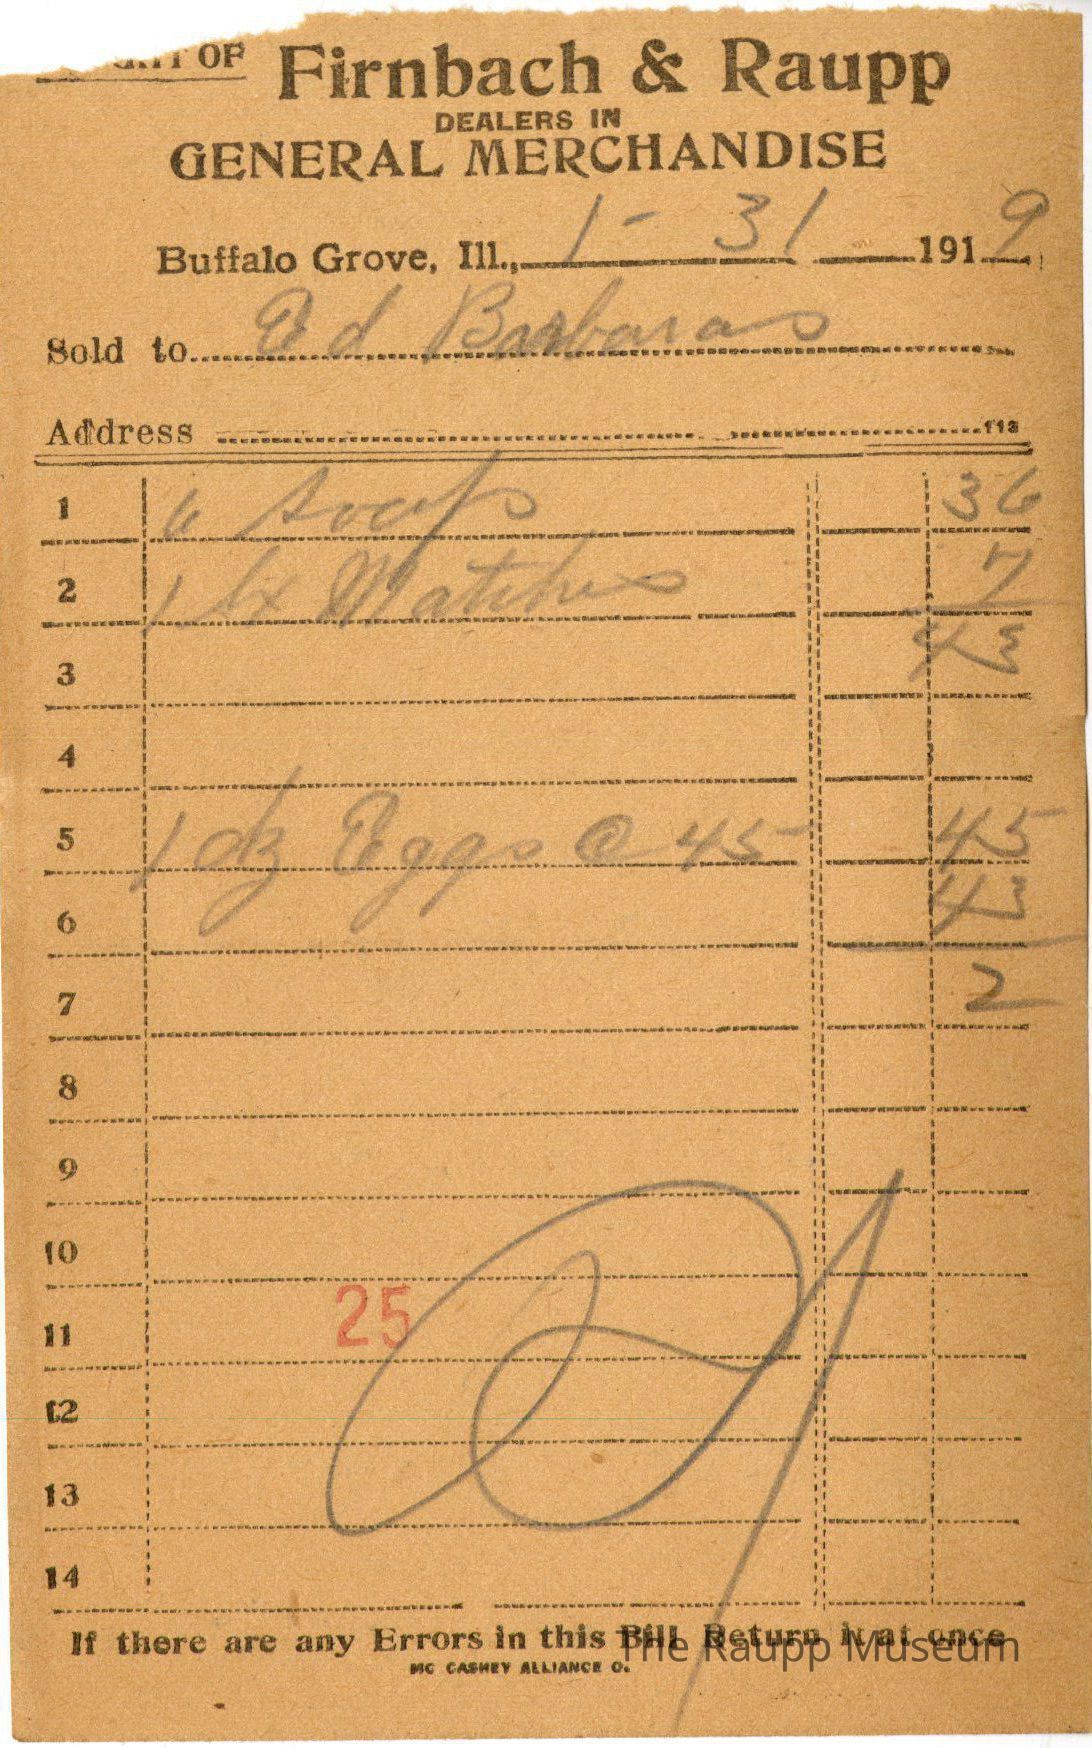 OF
Firnbach & Raupp
DEALERS IN
GENERAL MERCHANDISE
Buffalo Grove, Ill., 1 - 31 1919
Sold to Ed Barbaras
Address 113
1 6 Soap 36
2 1 bx Matches 7
3 43
4
5 1 dz Eggs @ 45 45
6 43
7 2
8
9
10
11 25
12
13
14
If there are any Errors in this Bill Return it at once
MC CASKEY ALLIANCE O.
The Raupp Museum